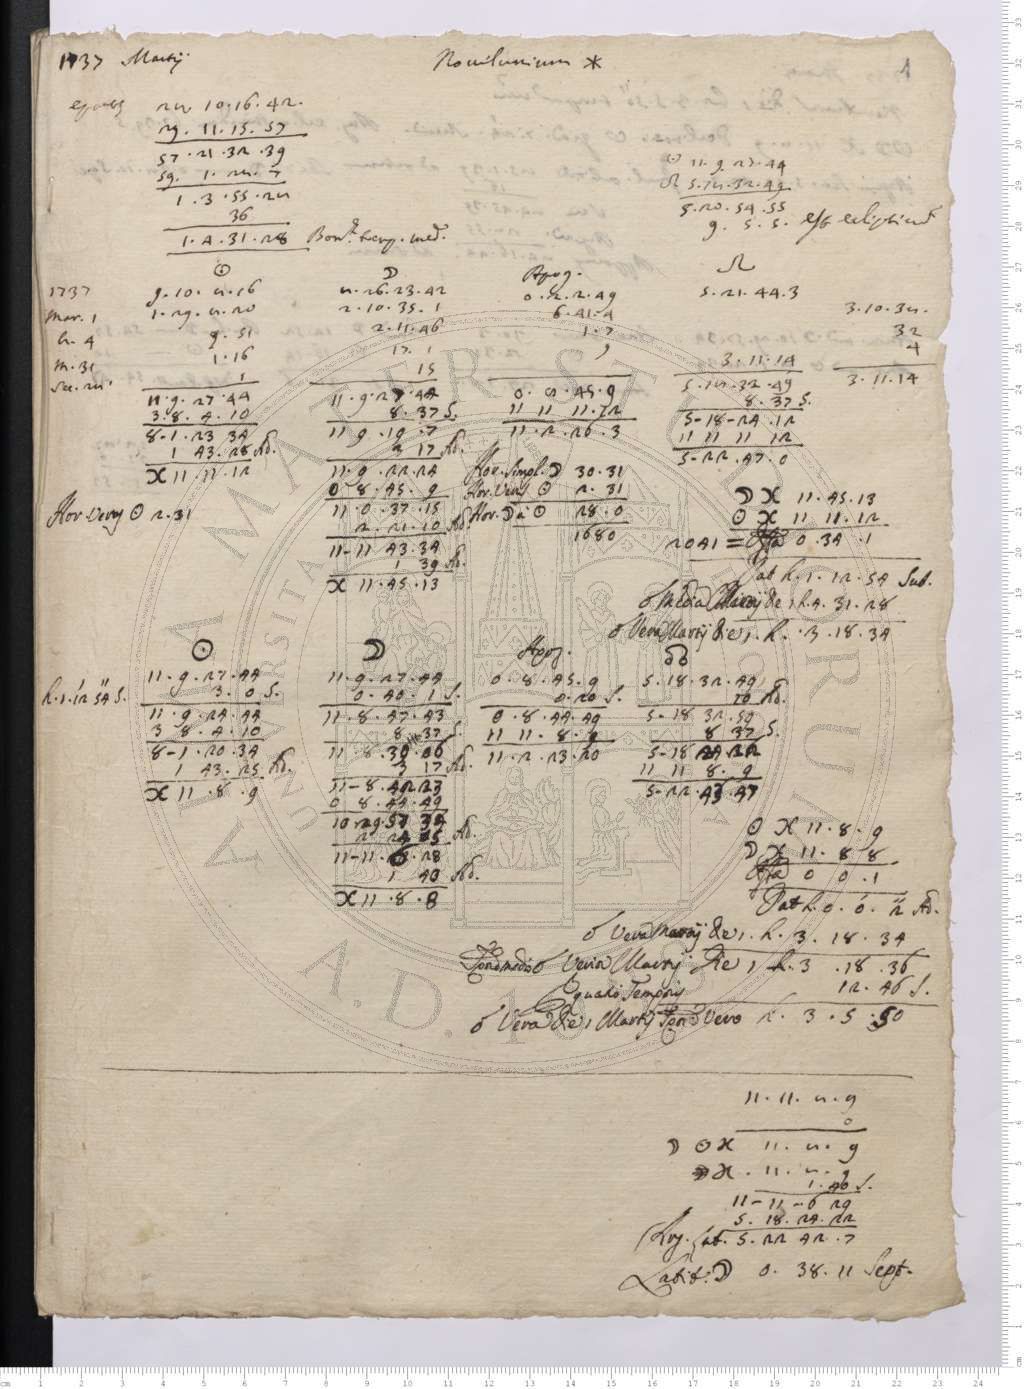 1737 Martij
Novilunium *
1
epocha 24. 10. 16. 42.
29. 11. 15. 57
57. 21. 32. 39
59. 1. 24. 7
1. 3. 55. 24
36
1. 4. 31. 28
☉ 11. 9. 27. 44
☊ 5. 14. 32. 49
5. 20. 54. 55
9. 5. 5. est ecliptica
☉
1737 9. 10. 4. 16
Mar. 1 1. 29. 4. 20
h. 4 9. 51
m. 31 1. 16
1
11. 9. 27. 44
3. 8. 4. 10
8-1. 23 34
1 43. 28 Ad.
♓ 11. 11. 12
Hor. Verus ☉ 2. 31
☽
4. 26. 23. 42
2. 10. 35. 1
2. 11. 46
17. 1
15
11. 9. 27. 44
8. 37 S.
11 9. 19. 7
3 17 Ad.
11. 9. 22. 24
0. 8. 45. 9
11. 0. 37. 15
2. 21. 10 Ad.
11-11 43. 34
1 39 Ad.
♓ 11. 45. 13
Apog.
0. 2. 2. 49
6. 41. 4
1. 7
11 11 11. 12
11. 2. 26. 3
Hor. Simpl. ☽ 30. 31
Hor. Verus ☉ 2. 31
Hor. ☽ à ☉ 28. 0
1680
☊
5. 21. 44. 3
3. 11. 14
5. 14. 32. 49
8. 37 S.
5-18-24. 12
11 11 11 12
5-22. 47. 0
3. 10. 34.
32
4
3. 11. 14
☽ ♓ 11. 45. 13
☉ ♓ 11 11. 12
2041 = 0. 34. 1
Dat h. 1. 12. 54 Sub.
☌ media Martij die 1 h. 4. 31. 28
☌ Vera Martij die 1. h. 3. 18. 34
☉
h. 1. 12 54 S. 11. 9. 27. 44
3. 0 S.
11. 9. 24. 44
3 8. 4. 10
8-1. 20. 34
1 43. 25 Ad.
♓ 11. 8. 9
☽
11. 9. 27. 44
0. 40. 1 S.
11. 8. 47. 43
8. 37 S.
11. 8. 39. 06
3 17 Ad.
11-8. 42 23
0 8. 44. 49
10 29. 57 34
11-11. 6. 28
1 40 Ad.
♓ 11. 8. 8
Apog.
0. 8. 45. 9
0. 20 S.
0. 8. 44. 49
11 11. 8. 9
11. 2. 23. 20
☊
5. 18. 32. 49
10 Ad.
5-18 32. 59
8 37 S.
5-18 24 22
11 11 8. 9
☉ ♓ 11. 8. 9
☽ ♓ 11. 8 8
0 0. 1
Dat h. 0. 0. 2 Ad.
☌ Vera Martij die 1. h. 3. 18. 34
☌ Vera Martij Die 1 h. 3. 18. 36
Equatio Temporis 12. 46 S.
☌ Vera die 1 Martij Vero h. 3. 5. 50
11. 11. 4. 9
0
☽ ☉ ♓ 11. 4. 9
♓. 11. 4. 9
1. 40 S.
11-11-6 29
5. 18. 24. 22
Arg. Lat. 5. 22 42. 7
Latit. ☽ 0. 38. 11 Sept.
ALMA MATER STUDIORUM
UNIVERSITA
A.D. 1088